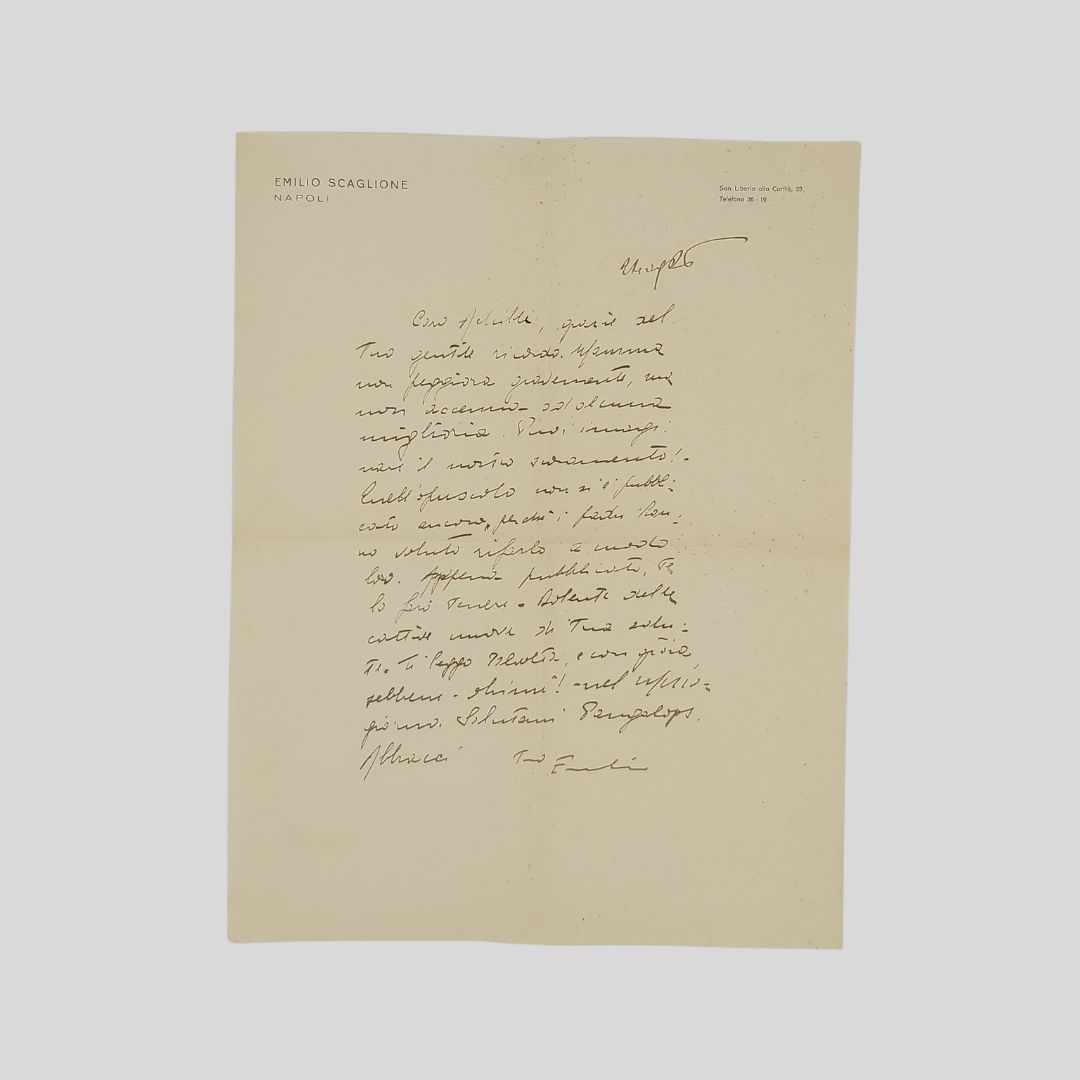 EMILIO SCAGLIONE
NAPOLI
San Liborio alla Carità, 33,
Telefono 36 - 19
Caro Achille, grazie del
Tuo gentile ricordo. Mamma
non peggiora gravemente, ma
non accenna ad alcuna
miglioria. Puoi imagi:
nare il nostro
Quell'opuscolo non si è pubbli:
cato ancora, perchè i fratu han:
no voluto rifarlo a modo
loro. Appena pubblicato, Te
lo farò tenere - Dolente delle
cattive nuove di Tua salu:
te. Ti leggo talvolta, e con gioia,
sebbene - ohimè! - nel Mezzo-
giorno. Salutami
Abbracci Tuo Emilio